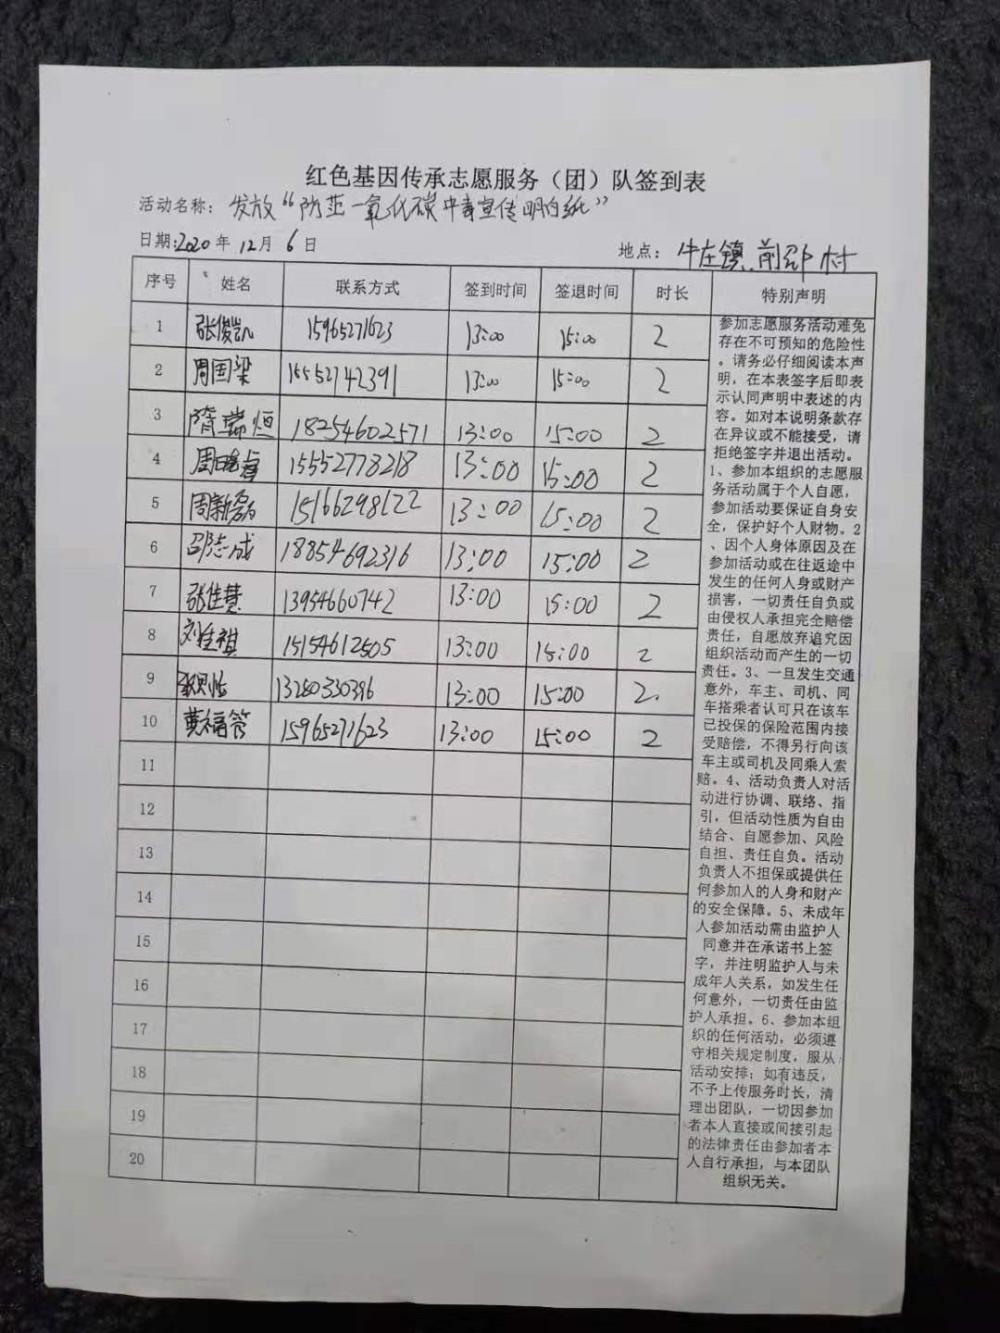 红色基因传承志愿服务（团）队签到表
活动名称：发放“防范一氧化碳中毒宣传明白纸”
日期:2020年12月6日 地点：牛庄镇前邵村
序号 姓名 联系方式 签到时间 签退时间 时长 特别声明
1 张俊凯 15965271623 13:00 15:00 2
2 周国梁 15552742391 13:00 15:00 2
3 隋瑞恒 18254602571 13:00 15:00 2
4 15552778218 13:00 15:00 2
5 周新磊 15166298122 13:00 15:00 2
6 邵志成 18854692316 13:00 15:00 2
7 张佳慧 13954660742 13:00 15:00 2
8 刘佳祺 15154612505 13:00 15:00 2
9 13280330396 13:00 15:00 2
10 黄福管 15965271623 13:00 15:00 2
11
12
13
14
15
16
17
18
19
20
参加志愿服务活动难免
存在不可预知的危险性
。请务必仔细阅读本声
明，在本表签字后即表
示认同声明中表述的内
容。如对本说明条款存
在异议或不能接受，请
拒绝签字并退出活动。
1、参加本组织的志愿服
务活动属于个人自愿，
参加活动要保证自身安
全，保护好个人财物。2
、因个人身体原因及在
参加活动或在往返途中
发生的任何人身或财产
损害，一切责任自负或
由侵权人承担完全赔偿
责任，自愿放弃追究因
组织活动而产生的一切
责任。3、一旦发生交通
意外，车主、司机、同
车搭乘者认可只在该车
已投保的保险范围内接
受赔偿，不得另行向该
车主或司机及同乘人索
赔。4、活动负责人对活
动进行协调、联络、指
引，但活动性质为自由
结合、自愿参加、风险
自担、责任自负。活动
负责人不担保或提供任
何参加人的人身和财产
的安全保障。5、未成年
人参加活动需由监护人
同意并在承诺书上签
字，并注明监护人与未
成年人关系，如发生任
何意外，一切责任由监
护人承担。6、参加本组
织的任何活动，必须遵
守相关规定制度，服从
活动安排；如有违反，
不予上传服务时长，清
理出团队，一切因参加
者本人直接或间接引起
的法律责任由参加者本
人自行承担，与本团队
组织无关。